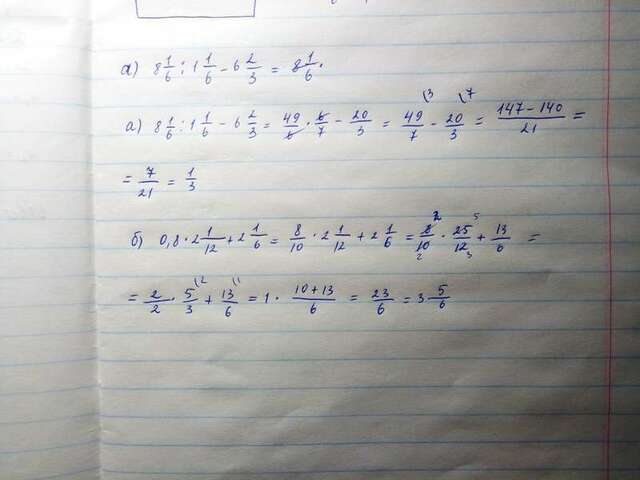 а) 8 1/6 : 1 1/6 - 6 2/3 = 8 1/6 ·
а) 8 1/6 : 1 1/6 - 6 2/3 = 49/6 · 6/7 - 20/3 = 49/7 \3 - 20/3 \7 = 147-140/21 =
= 7/21 = 1/3
б) 0,8 · 2 1/12 + 2 1/6 = 8/10 · 2 1/12 + 2 1/6 = 8 2/10 2 · 25 5/12 3 + 13/6 =
= 2/2 · 5/3 \2 + 13/6 \1 = 1 · 10+13/6 = 23/6 = 3 5/6